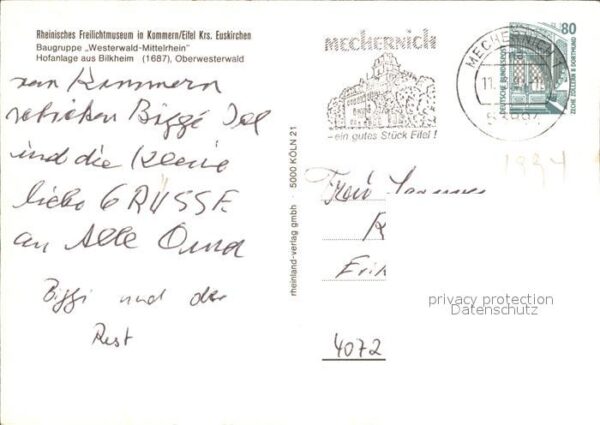 Rheinisches Freilichtmuseum in Kommern/Eifel Krs. Euskirchen
Baugruppe „Westerwald-Mittelrhein"
Hofanlage aus Bilkheim (1687), Oberwesterwald
von Kommern
schicken
und die Kleine
liebe GRÜSSE
an Alle
Biggi und der
Rest
rheinland-verlag gmbh · 5000 KÖLN 21
MECHERNICH
– ein gutes Stück Eifel !
MECHERNICH 1
11.
80
DEUTSCHE BUNDESPOST
ZECHE ZOLLERN II DORTMUND
1994
Frau
K
Erik
4072
privacy protection
Datenschutz